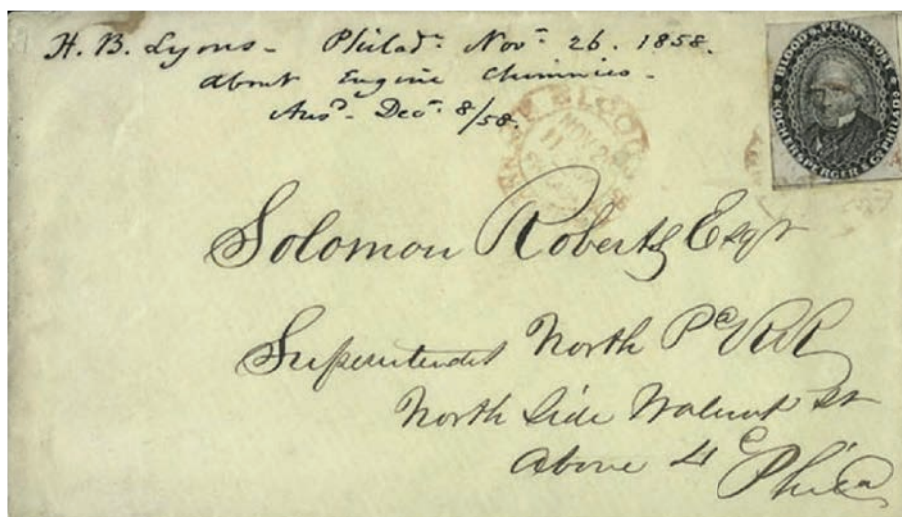 H. B. Lyons - Philadᵃ. Novʳ. 26. 1858.
about Engine Chimnies -
Ansᵈ. Decʳ. 8/58.
BLOOD'S PENNY POST
KOCHERSPERGER & CO. PHILADA.
NOV 2
Solomon Roberts Esqr
Superintendet North Pa RR
North Side Walnut St
above 4 Phila